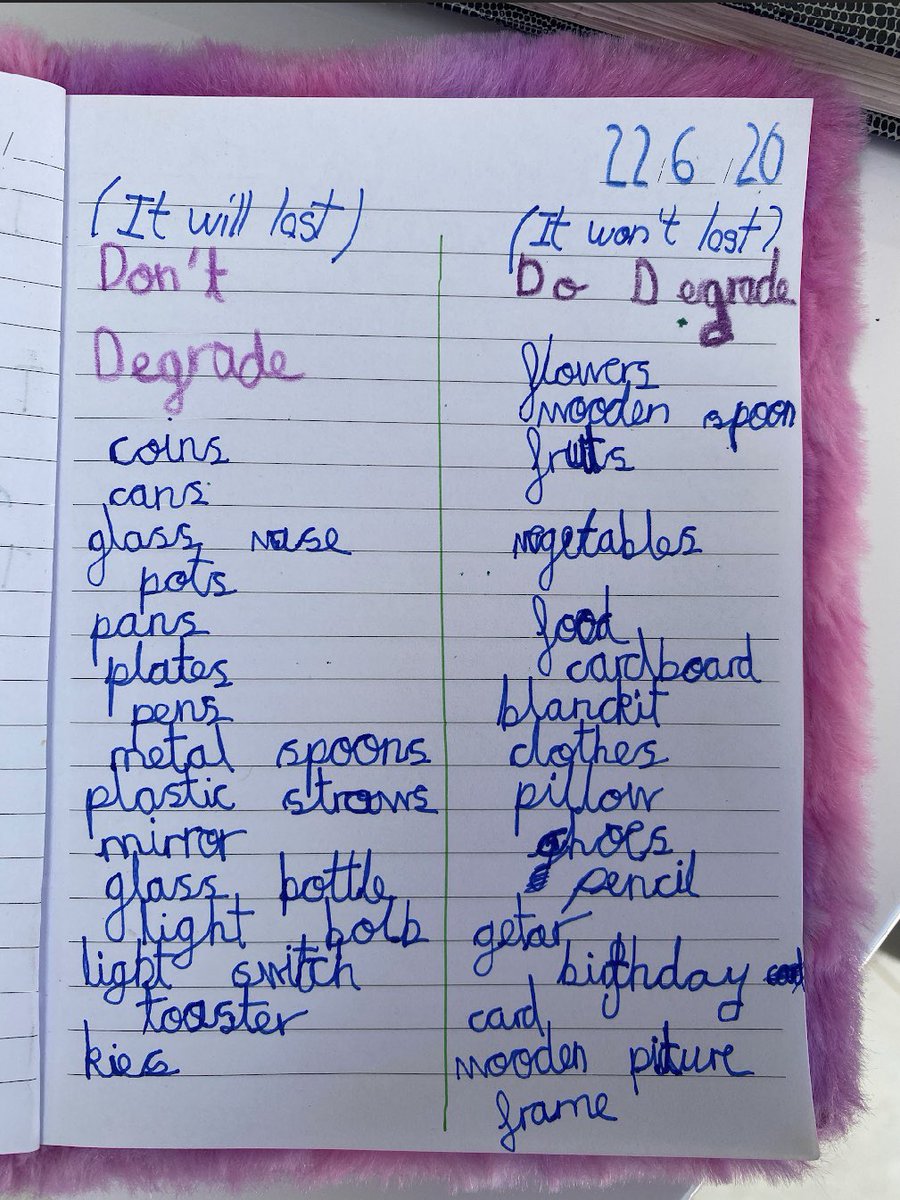 22/6/20
(It will last)
Don't
Degrade
coins
cans
glass vase
pots
pans
plates
pens
metal spoons
plastic straws
mirror
glass bottle
light bolb
light switch
toaster
kies
(It won't last)
Do Degrade
flowers
wooden spoon
fruits
vegetables
food
cardboard
blanckit
clothes
pillow
shoes
pencil
getar
birthday
card
wooden picture
frame